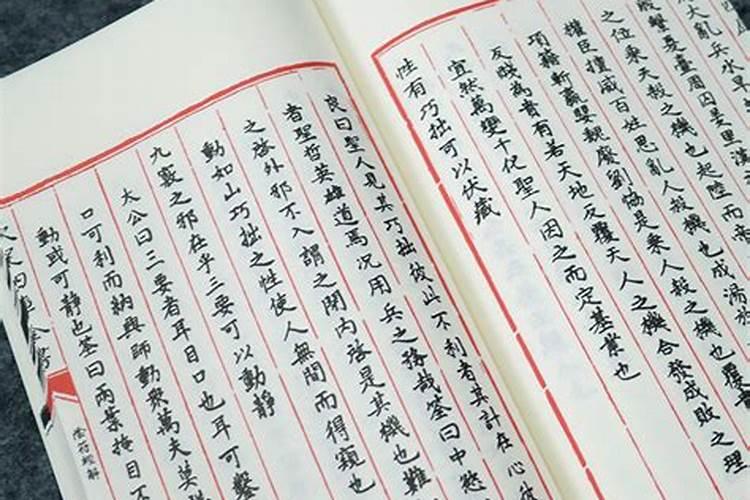 大亂兵水旱
殷繫夏臺周囚羑里漢
之位乘天殺之機也起陸而帝
權臣擅威百姓思亂人殺機也成湯放
項籍斬嬴嬰魏廢劉協是乘人殺之機也覆貴
反賤為貴有若天地反覆天人之機合發成敗之理
宜然萬變千化聖人因之而定基業也
性有巧拙可以伏藏
良曰聖人見其巧拙彼此不利者其計在心彼
者聖哲英雄道焉况用兵之務哉筌曰中慾
之啓外邪不入謂之閉内啓是其機也難
動如山巧拙之性使人無間而得窺也
九竅之邪在乎三要可以動靜
太公曰三要者耳目口也耳可鑿
口可利而訥興師動衆萬夫莫議
動或可靜也筌曰兩葉掩目不
陰符經解